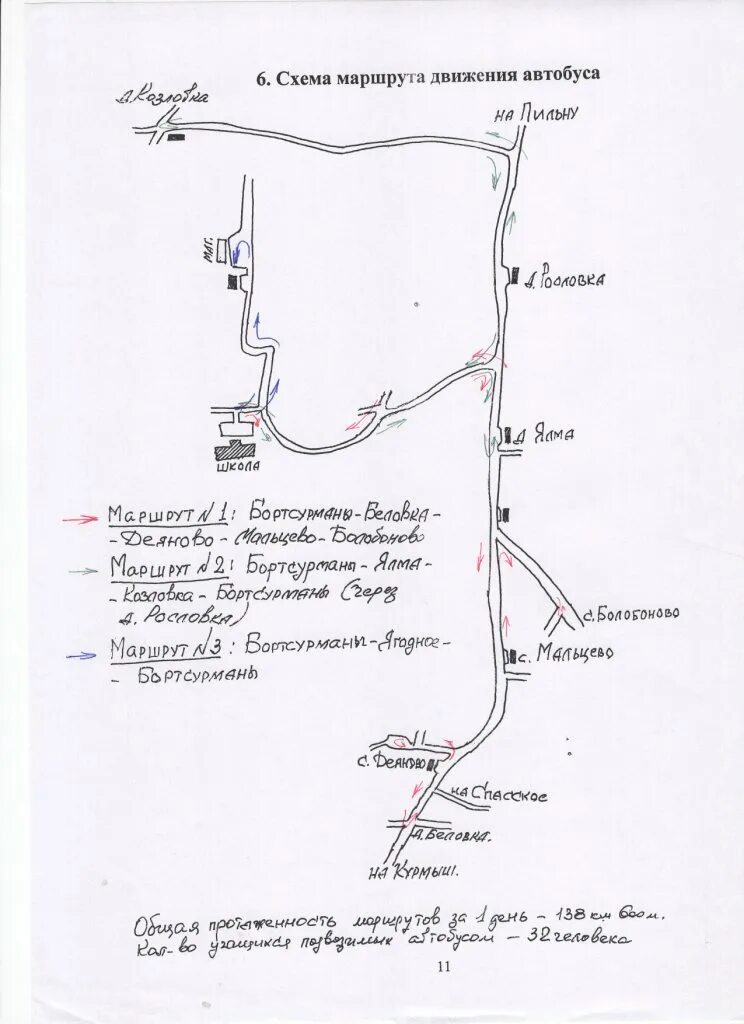 6. Схема маршрута движения автобуса
д. Козловка
на Пильну
МАГ.
д. Рословка
д Ялма
школа
Маршрут №1: Бортсурманы-Беловка-
-Деяново-Мальцево-Болобоново
Маршрут №2: Бортсурманы-Ялма-
-Козловка-Бортсурманы (через
д. Рословка)
Маршрут №3: Бортсурманы-Ягодное-
- Бортсурманы
с. Болобоново
с. Мальцево
с. Деяново
на Спасское
д. Беловка.
на Курмыш.
Общая протяженность маршрутов за 1 день - 138 км 600 м.
Кол-во учащихся подвозимых автобусом - 32 человека
11